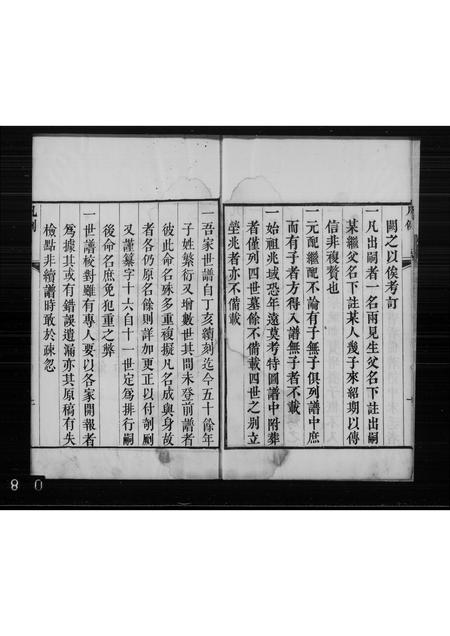 闕之以俟考訂
一凡出嗣者一名兩見生父名下註出嗣
某繼父名下註某人幾子來紹期以傳
信非複贅也
一元配繼配不論有子無子俱列譜中庶
而有子者方得入譜無子者不載
一始祖兆域恐年遠莫考特圖譜中附葬
者僅列四世墓餘不僃載四世之别立
塋兆者亦不僃載
凡例
一吾家世譜自丁亥續刻迄今五十餘年
子姓繁衍又增數世其間未登前譜者
彼此命名殊多重複擬凡名成與身故
者各仍原名餘則詳加更正以付剞劂
又謹纂字十六自十一世定爲排行嗣
後命名庶免犯重之弊
一世譜校對雖有專人要以各家開報者
爲據其或有錯誤遺漏亦其原稿有失
檢點非續譜時敢於疎忽
08